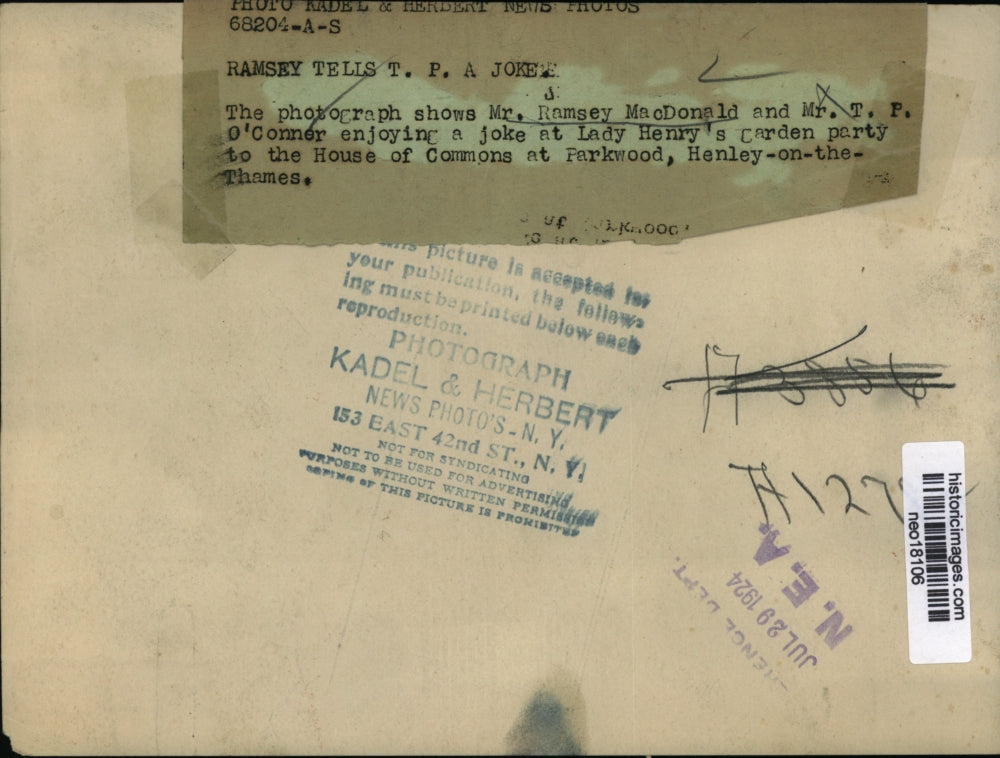 PHOTO KADEL & HERBERT NEWS PHOTOS
68204-A-S
RAMSEY TELLS T. P. A JOKE.
The photograph shows Mr. Ramsey MacDonald and Mr. T. P.
O'Conner enjoying a joke at Lady Henry's garden party
to the House of Commons at Parkwood, Henley-on-the-
Thames.
picture is accepted for
your publication, the follow-
ing must be printed below each
reproduction.
PHOTOGRAPH
KADEL & HERBERT
NEWS PHOTO'S - N. Y.
153 EAST 42nd ST., N. Y.
NOT FOR SYNDICATING
NOT TO BE USED FOR ADVERTISING
PURPOSES WITHOUT WRITTEN PERMISSION
COPYING OF THIS PICTURE IS PROHIBITED
#127
DEPT.
JUL 29 1924
N. E. A.
historicimages.com
neo18106